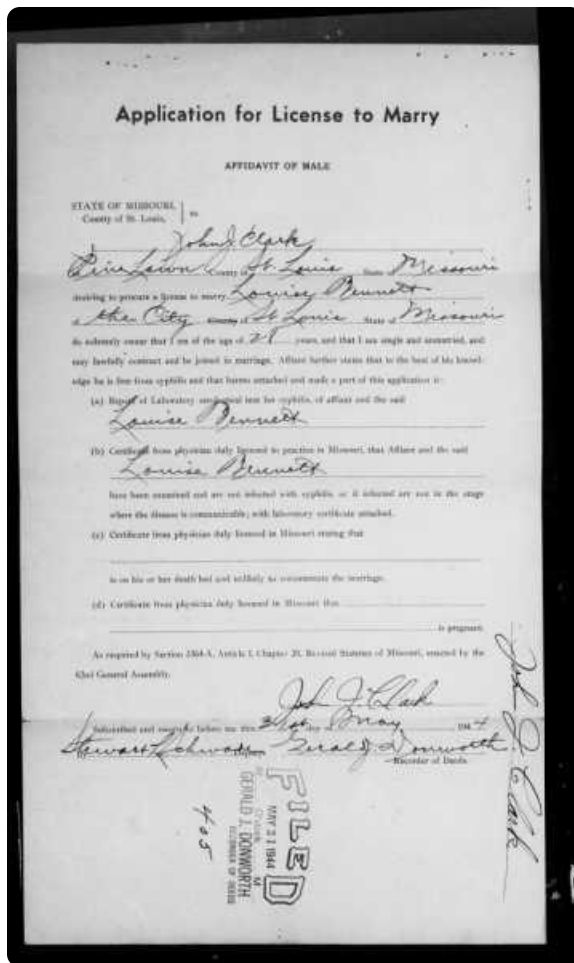 Application for License to Marry
AFFIDAVIT OF MALE
STATE OF MISSOURI,
County of St. Louis,
ss
I John J. Clark
Pine Lawn County of St Louis State Missouri
desiring to procure a license to marry Louise Bennett
of the City County of St Louis State of Missouri
do solemnly swear that I am of the age of years, and that I am single and unmarried, and
may lawfully contract and be joined in marriage. Affiant further states that to the best of his knowl-
edge he is free from syphilis and that hereto attached and made a part of this application is:
(a) Report of Laboratory test for syphilis, of affiant and the said
Louise Bennett
(b) Certificate from physician duly licensed to practice in Missouri, that Affiant and the said
Louise Bennett
have been examined and are not infected with syphilis, or if infected are not in the stage
where the disease is communicable; with laboratory certificate attached.
(c) Certificate from physician duly licensed in Missouri stating that
is on his or her death bed and unlikely to consummate the marriage.
(d) Certificate from physician duly licensed in Missouri that
is pregnant.
As required by Section Article 1, Chapter 20, Revised Statutes of Missouri, enacted by the
62nd General Assembly.
John J. Clark
Subscribed and sworn to before me this 31st day of May 1944
Stewart Deputy. Gerald J Donworth
Recorder of Deeds
John J. Clark
FILED
MAY 31 1944
GERALD J. DONWORTH
RECORDER OF DEEDS
405